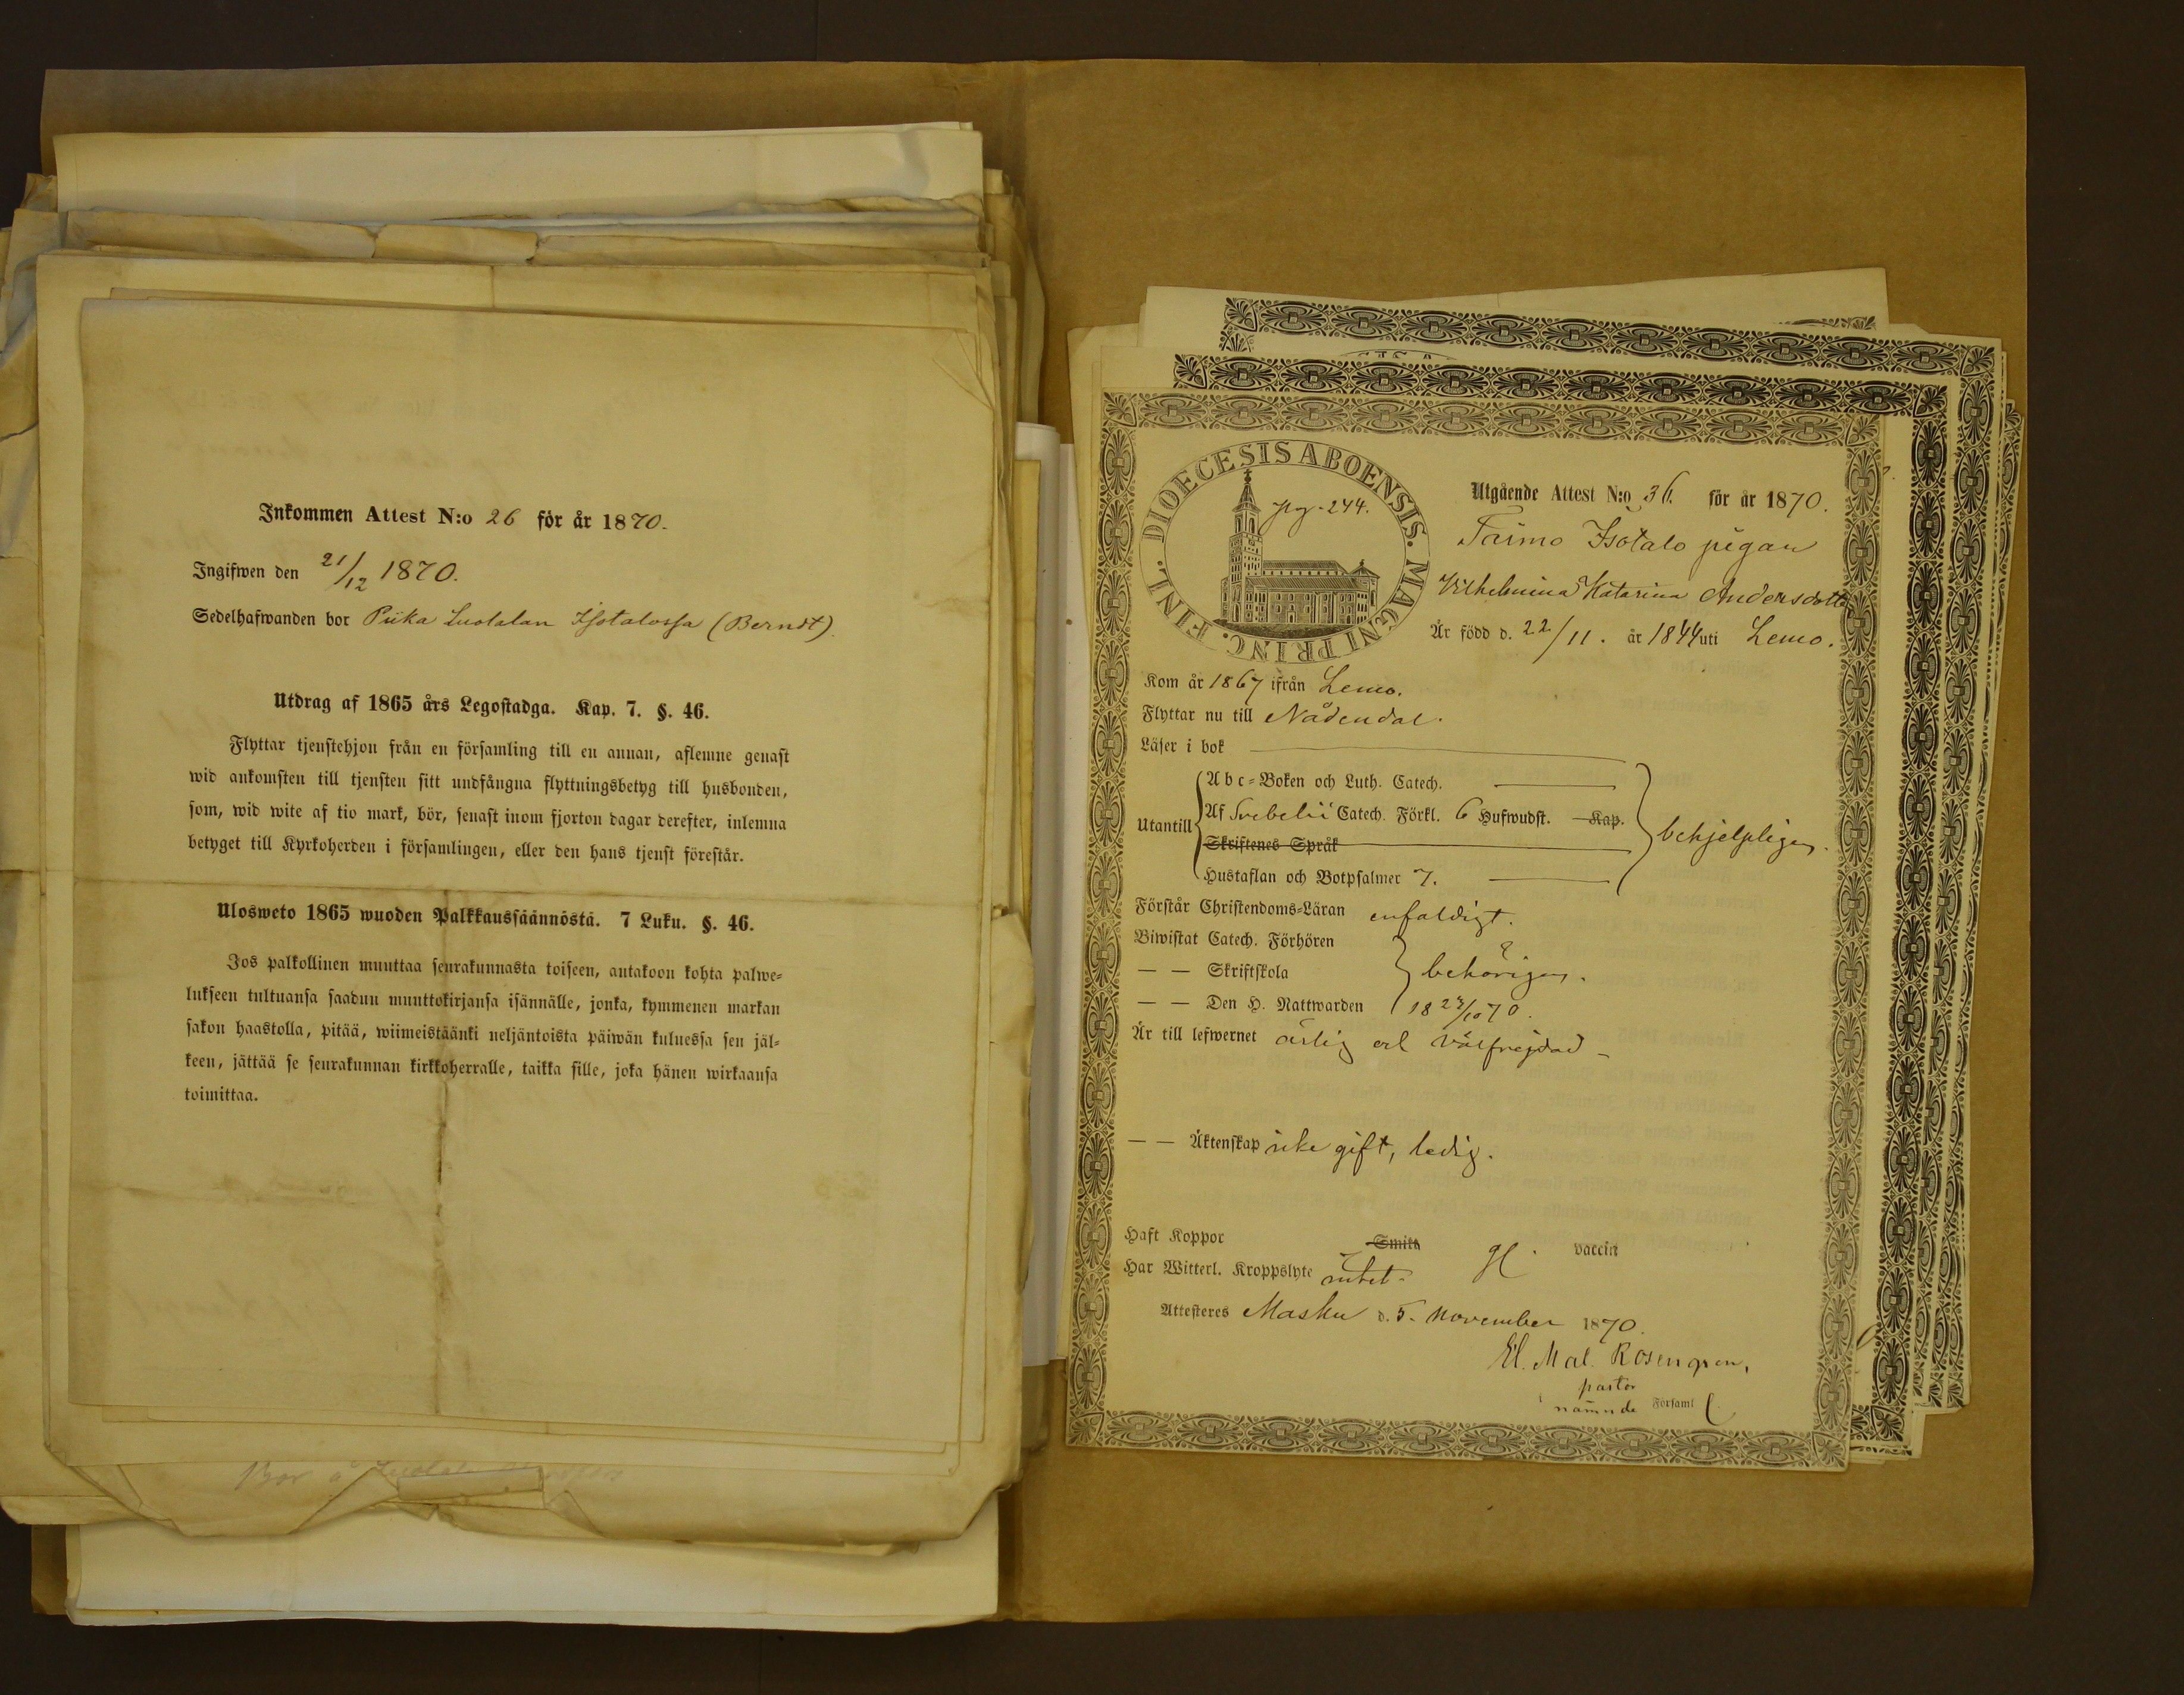 Inkommen Attest N:o 26 för år 1870.
Ingifwen den 21/12 1870.
Sedelhafwanden bor Piika Luolalan Isotalossa (Berndt).
Utdrag af 1865 års Legostadga. Kap. 7. §. 46.
Flyttar tjenstehjon från en församling till en annan, aflemne genast
wid ankomsten till tjensten sitt undfångna flyttningsbetyg till husbonden,
som, wid wite af tio mark, bör, senast inom fjorton dagar derefter, inlemna
betyget till Kyrkoherden i församlingen, eller den hans tjenst förestår.
Ulosweto 1865 wuoden Palkkaussäännöstä. 7 Luku. §. 46.
Jos palkollinen muuttaa seurakunnasta toiseen, antakoon kohta palwe=
lukseen tultuansa saadun muuttokirjansa isännälle, jonka, kymmenen markan
sakon haastolla, pitää, wiimeistäänki neljäntoista päiwän kuluessa sen jäl=
keen, jättää se seurakunnan kirkkoherralle, taikka sille, joka hänen wirkaansa
toimittaa.
Bor å
DIOECESIS ABOENSIS. MAGNI PRINC. FINL.
pag. 244.
Utgående Attest N:o 36. för år 1870.
Taimo Isotalo pigan
Vilhelmina Katarina Andersdotter
Är född d. 22/11. år 1844 uti Lemo.
Kom år 1867 ifrån Lemo.
Flyttar nu till Nådendal.
Läser i bok
Utantill
Abc=Boken och Luth. Catech.
Af Svebelii Catech. Förkl. 6 Hufwudst. Kap.
Skriftenes Språk
Hustaflan och Botpsalmer 7.
behjelpligen.
Förstår Christendoms=Läran enfaldigt.
Biwistat Catech. Förhören
— — Skriftskola behörigen.
— — Den H. Nattwarden 18 23/10 70.
Är till lefwernet ärlig och välfrejdad
— — Äktenskap icke gift, ledig.
Haft Koppor Smitt vaccin
Har Witterl. Kroppslyte intet.
Attesteres Masku d. 5. November 1870.
El. Mal. Rosengren,
pastor
nämnde Församl